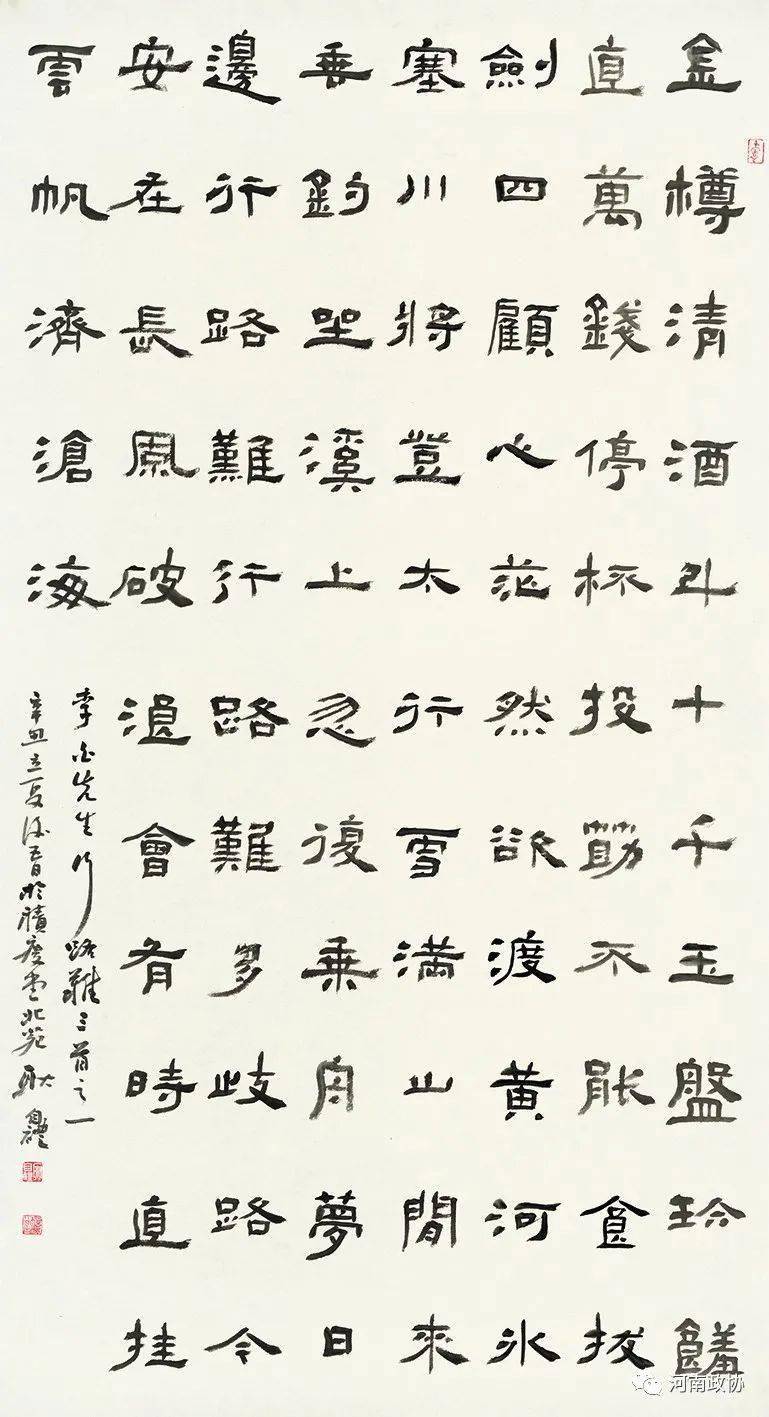 金樽清酒斗十千玉盤珍饈
直萬錢停杯投筯不能食拔
劍四顧心茫然欲渡黃河冰
塞川將登太行雪滿山閒來
垂釣坐溪上忽復乘舟夢日
邊行路難行路難多歧路今
安在長風破浪會有時直挂
雲帆濟滄海
李白先生行路難三首之一
辛丑立夏後於堂北苑耿自禮
河南政协